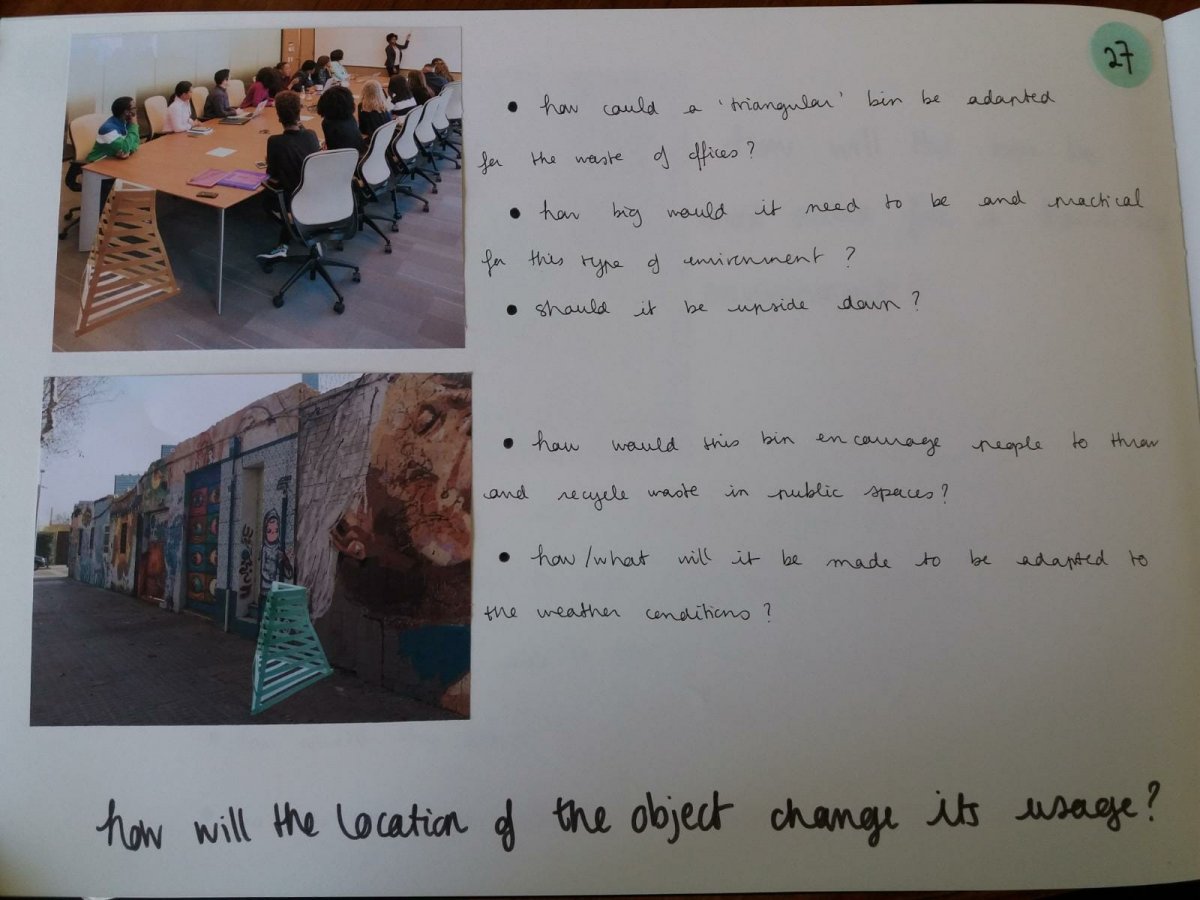 27
• how could a 'triangular' bin be adapted
for the waste of offices?
• how big would it need to be and practical
for this type of environment?
• should it be upside down?
• how would this bin encourage people to throw
and recycle waste in public spaces?
• how/what will it be made to be adapted to
the weather conditions?
how will the location of the object change its usage?